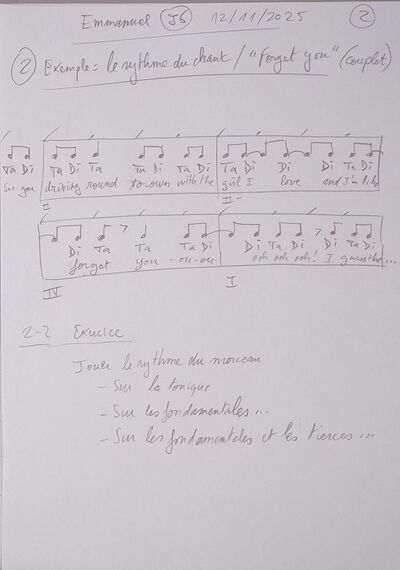 Emmanuel J6 12/11/2025 2
2 Exemple = le rythme du chant / "Forget you" (couplet)
Ta Di Ta Di Ta Ta Di Ta Di Ta Di Di Di Ta Di
See you driving round to-own with the girl I love and I'm like
I II-
Di Ta Ta Ta Di Di Ta Di Di Ta Di
forget you -ou-ou- ooh ooh ooh! I guess the...
IV I
2-2 Exercice
Jouer le rythme du morceau
- Sur la tonique
- Sur les fondamentales...
- Sur les fondamentales et les tierces...